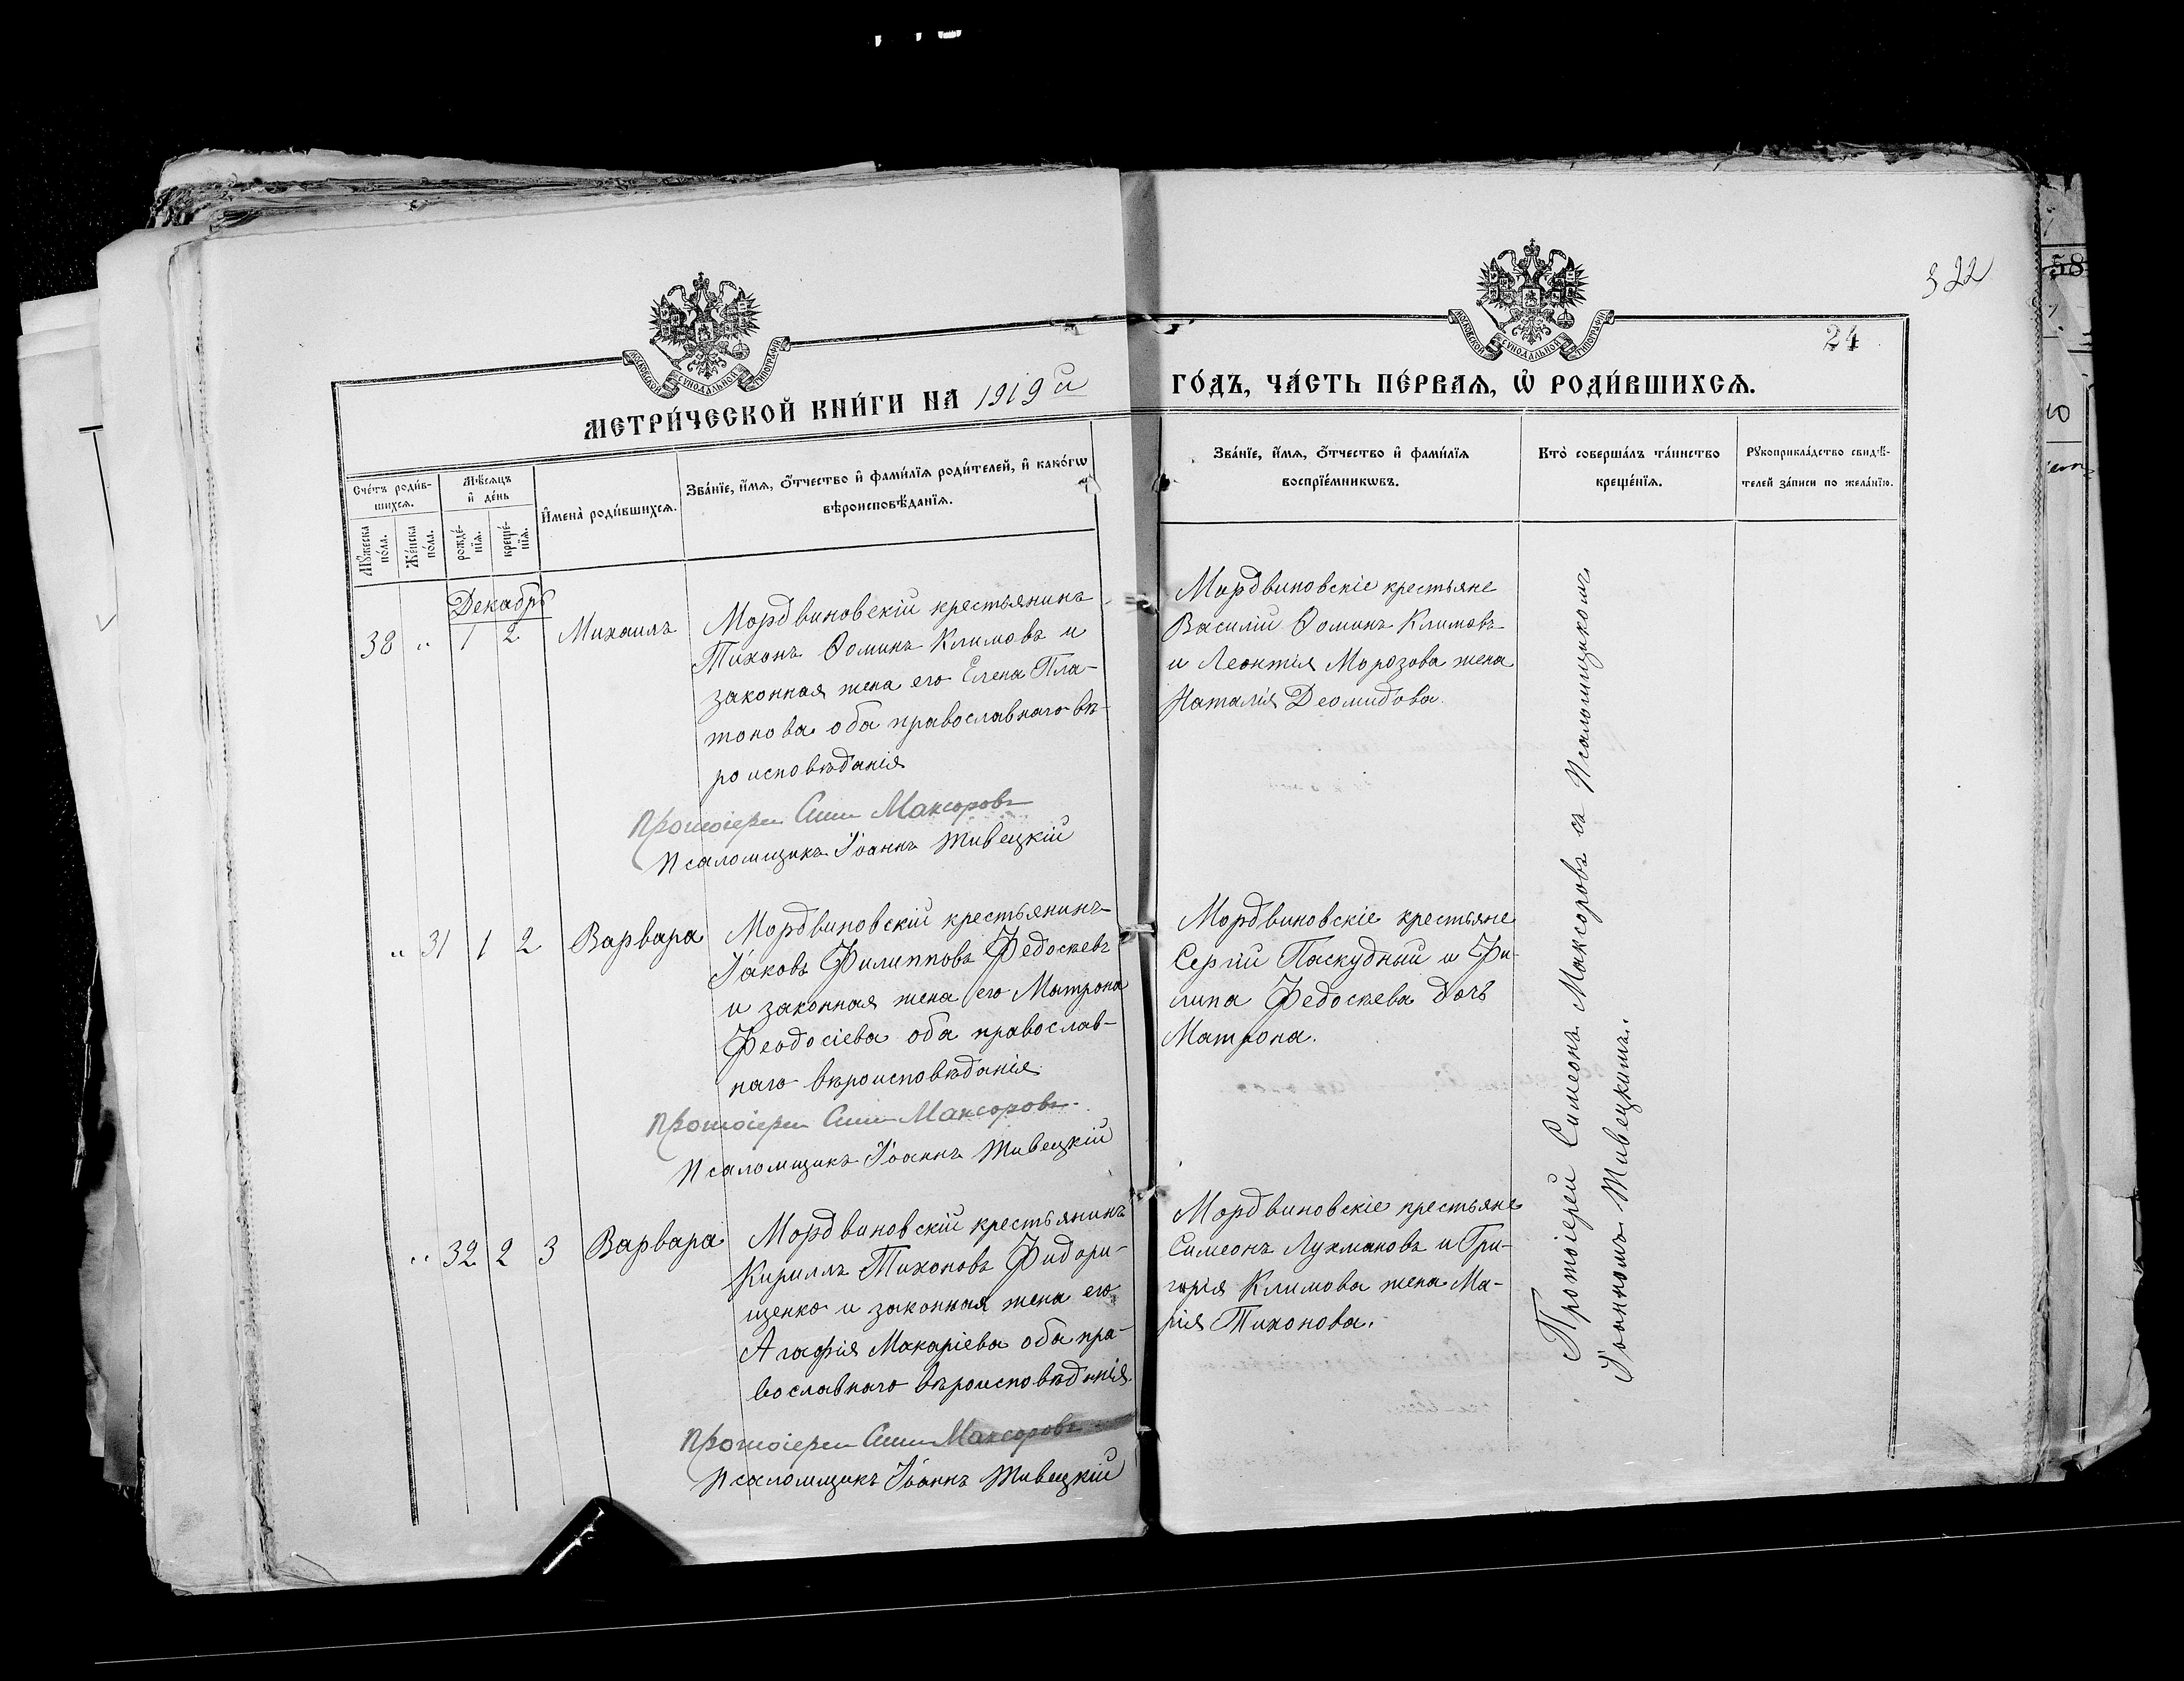 322
24
МОСКОВСКОЙ СѴНОДАЛЬНОЙ ТИПОГРАФІИ
МОСКОВСКОЙ СѴНОДАЛЬНОЙ ТИПОГРАФІИ
МЕТРИ́ЧЕСКОЙ КНИ́ГИ НА 1919й ГО́ДЪ, ЧА́СТЬ ПЕ́РВАЯ, Ѡ҆ РОДИ́ВШИХСЯ.
Сче́тъ роди́в-
шихся.
Мꙋ́жеска
по́ла.
Же́нска
по́ла.
Мѣ́сяцъ
и҆ де́нь
рожде́-
нїя.
креще́-
нїя.
И҆мена̀ роди́вшихся.
Зва́нїе, и҆́мя, ѻ҆́тчество и҆ фами́лїя роди́телей, и҆ како́гѡ
вѣроисповѣ́данїя.
Зва́нїе, и҆́мя, ѻ҆́тчество и҆ фами́лїя
воспрїе́мникѡвъ.
Кто̀ соверша́лъ та́инство
креще́нїя.
Рꙋкоприкла́дство свидѣ́-
телей за́писи по жела́нїю.
Декабрь
38 " 1 2 Михаилъ
Мордвиновскій крестьянинъ
Тихонъ Ѳоминъ Климовъ и
законная жена его Елена Пла-
тонова оба православнаго вѣ-
роисповѣданія
Протоіерей Сим Максоровъ
Псаломщикъ Іоаннъ Живецкій
Мордвиновскіе крестьяне
Василій Ѳоминъ Климовъ
и Леонтія Морозова жена
Наталія Деомидова.
" 31 1 2 Варвара
Мордвиновскій крестьянинъ
Іаковъ Филипповъ Федосѣевъ
и законная жена его Матрона
Феодосіева оба православ-
наго вѣроисповѣданія
Протоіерей Сим Максоровъ.
Псаломщикъ Іоаннъ Живецкій
Мордвиновскіе крестьяне
Сергій Паскудный и Фи-
липа Федосѣева дочь
Матрона.
" 32 2 3 Варвара
Мордвиновскій крестьянинъ
Кириллъ Тихоновъ Фидори-
щенко и законная жена его
Агафія Макаріева оба пра-
вославнаго вѣроисповѣднія
Протоіерей Сим Максоровъ
Псаломщикъ Іоаннъ Живецкій
Мордвиновскіе крестьяне
Симеонъ Лукмановъ и Гри-
горія Климова жена Ма-
рія Тихонова.
Протоіерей Симеонъ Максоровъ съ Псаломщикомъ
Іоанномъ Живецкимъ.
58